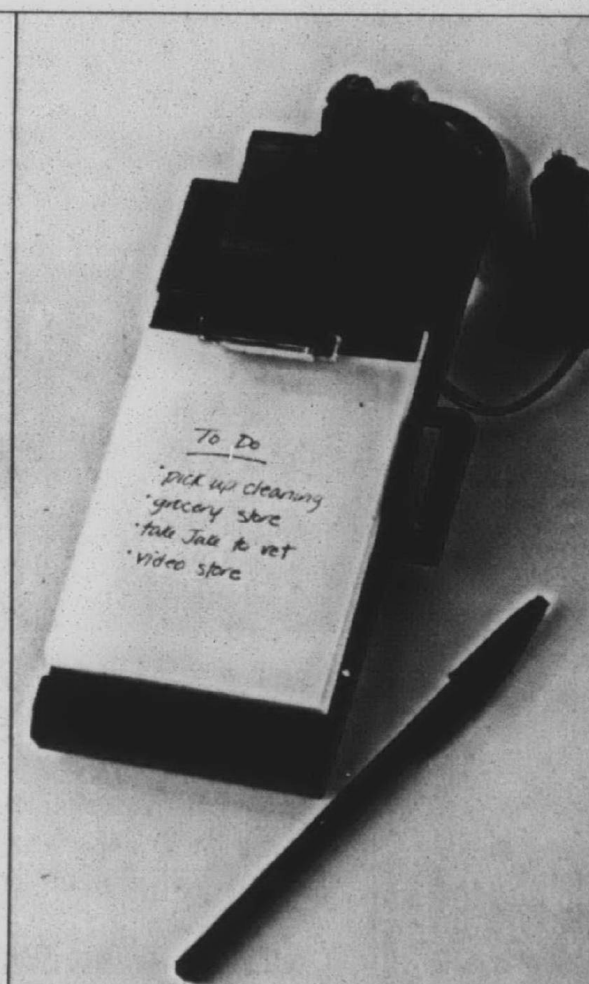 To Do
• pick up cleaning
• grocery store
• take Jake to vet
• video store